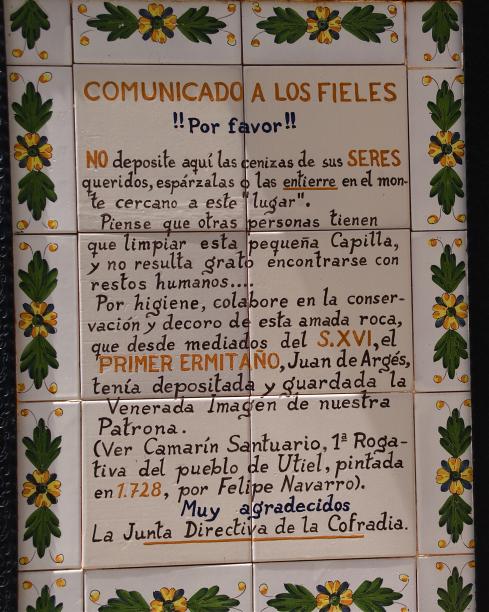 COMUNICADO A LOS FIELES
!!Por favor!!
NO deposite aquí las cenizas de sus SERES
queridos, espárzalas o las entierre en el mon-
te cercano a este "lugar".
Piense que otras personas tienen
que limpiar esta pequeña Capilla,
y no resulta grato encontrarse con
restos humanos....
Por higiene, colabore en la conser-
vación y decoro de esta amada roca,
que desde mediados del S.XVI, el
PRIMER ERMITAÑO, Juan de Argés,
tenía depositada y guardada la
Venerada Imagen de nuestra
Patrona.
(Ver Camarín Santuario, 1ª Roga-
tiva del pueblo de Utiel, pintada
en 1.728, por Felipe Navarro).
Muy agradecidos
La Junta Directiva de la Cofradia.